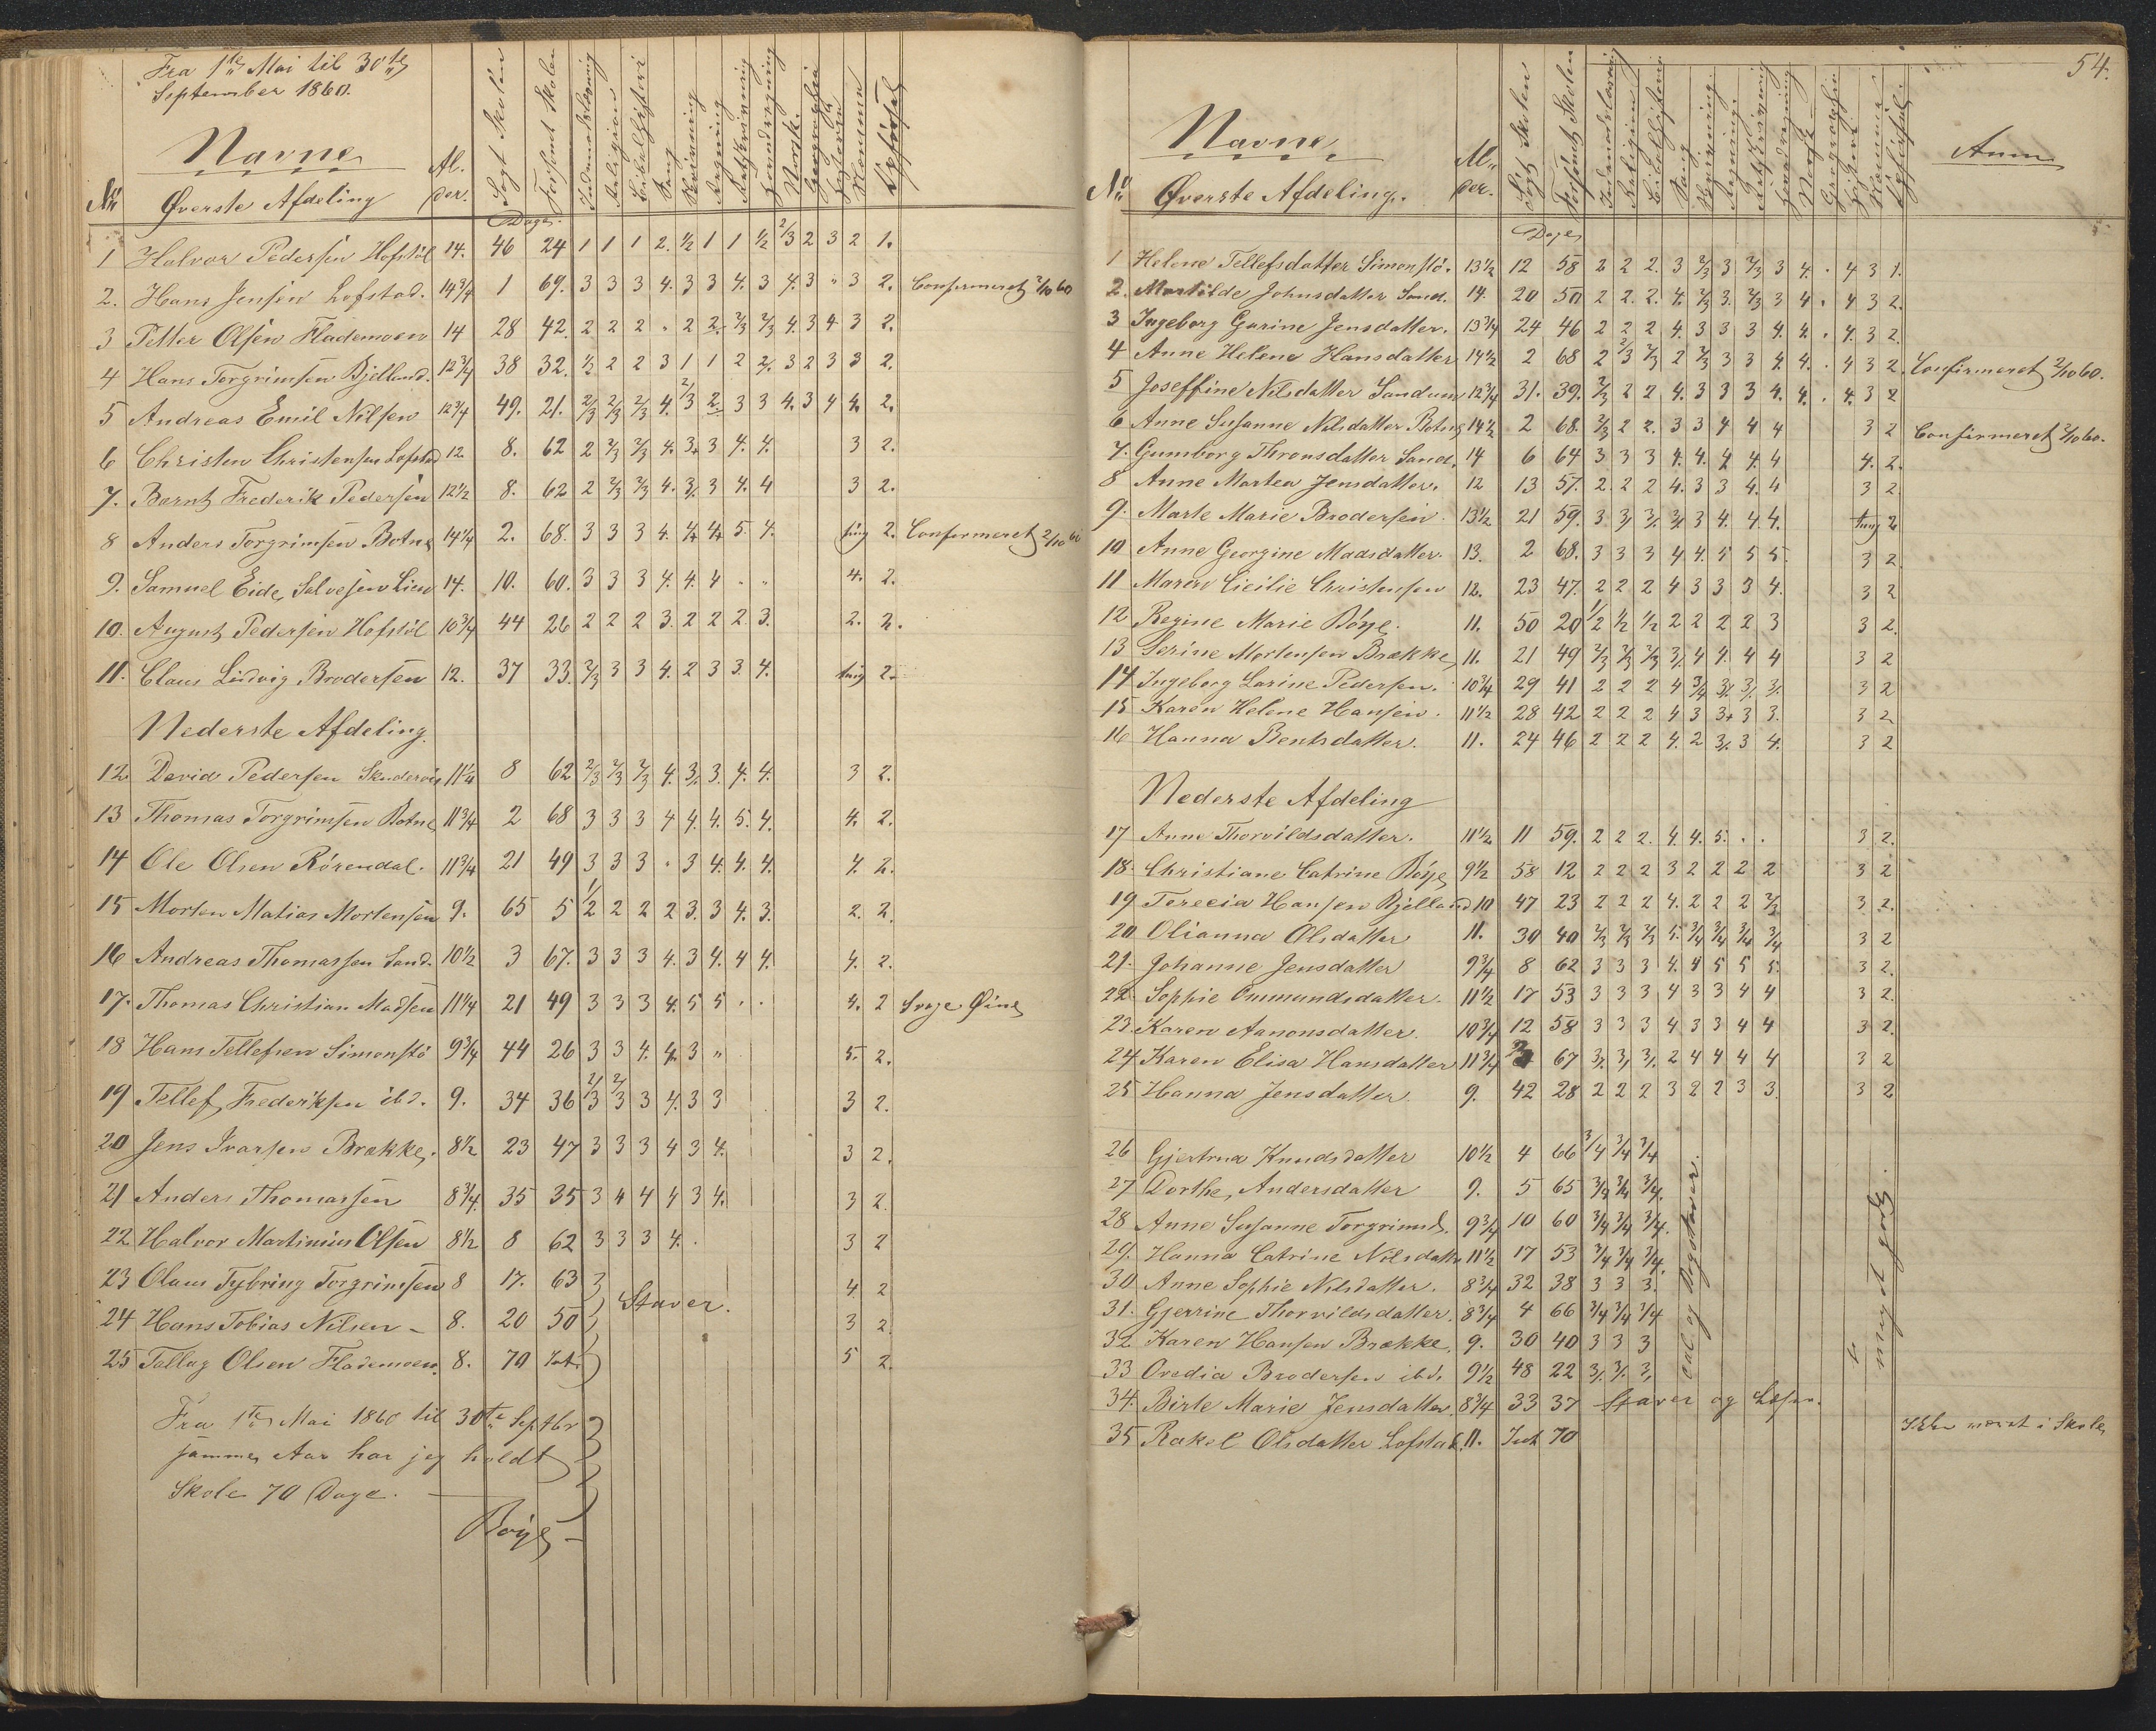 Fra 1te Mai til 30te
September 1860.
No Navne Al- Søgt Skolen Forsømt Skolen Indenadslæsning Religion Bibelhistori Sang Skrivning Regning Retskrivning Norsk Geographi Historie
Øverste Afdeling der. Dage
1 Halvor Pedersen Hofstöl 14. 46 24 1 1 1 2. 1/2 1 1 1/2 2/3 2 3 2 1.
2. Hans Jensen Lofstad. 14 3/4 1 69. 3 3 3 4. 3 3 4. 3 4. 3 " 3 2. Confirmeret 2/10 60
3 Petter Olsen Flademoen 14 28 42. 2 2 2 " 2 2. 2/3 2/3 4. 3 4 3 2.
4 Hans Torgrimsen Bjelland. 12 3/4 38 32. 1/2 2 2 3 1 1 2 2/. 3 2 3 3 2.
5 Andreas Emil Nilsen 12 3/4 49. 21. 2/3 2/3 2/3 4. 2/3 2. 3 3 4. 3 4 4. 2.
6 Christen Christensen Lofstad 12 8. 62 2 2/3 2/3 4. 3. 3 4. 4. 3 2.
7. Bernt Frederik Pedersen 12 1/2 8. 62 2 2/3 2/3 4. 3/. 3 4. 4 3 2.
8 Anders Torgrimsen Botne 14 1/4 2. 68. 3 3 3 4. 4. 4. 5. 4. 2. Confirmeret 2/10 60
9. Samuel Eide Salvesen Lien 14. 10. 60. 3 3 3 4. 4. 4 " " 4. 2.
10. August Pedersen Hofstöl 10 3/4 44 26 2 2 2 3. 2 2 2. 3. 2. 2.
11. Claus Ludvig Brodersen 12. 37 33. 2/3 3 3 4. 2 3 3. 4. 2.
Nederste Afdeling.
12 David Pedersen 11 1/4 8 62 2/3 2/3 2/3 4. 3/. 3. 4. 4. 3 2.
13 Thomas Torgrimsen Botne 11 3/4 2 68 3 3 3 4 4. 4. 5. 4. 4. 2.
14 Ole Olsen Rörendal. 11 3/4 21 49 3 3 3 " 3 4. 4. 4. 4. 2.
15 Morten Matias Mortensen 9. 65 5 1/2 2 2 2 3. 3 4. 3. 2. 2.
16 Andreas Thomassen Sand. 10 1/2 3 67. 3 3 3 4. 3 4. 4 4. 4. 2.
17. Thomas Christian Madsen 11 1/4 21 49 3 3 3 4. 5 5 . . 4. 2 Svage Øine
18 Hans Tellefsen Simonstö 9 3/4 44 26 3 3 4. 4. 3 " 5. 2.
19 Tellef Frederiksen ibd. 9. 34 36 2/3 2/3 3 4. 3 3 3 2.
20 Jens Ivarsen Brække. 8 1/2 23 47 3 3 3 4 3 4. 3 2.
21 Anders Thomassen 8 3/4. 35 35 3 4 4 4 3 4. 3 2.
22 Halvor Martinius Olsen 8 1/2 8 62 3 3 3 4. . 3 2
23 Olaus Tybring Torgrimsen 8 17. 63 Staver. 4 2
24 Hans Tobias Nilsen 8. 20 50 3 2
25 Tallag Olsen Flademoen. 8. 70 Int. 5 2.
Fra 1te Mai 1860 til 30te Septbr
samme Aar har jeg holdt
Skole 70 Dage.
Böye
54.
No Navne Al- Søgt Skolen Forsømt Skolen Indenadslæsning Religion Bibelhistorie Sang Skrivning Regning Retskrivning Norsk Geographie Historie Anm.
Øverste Afdeling. der. Dage
1 Helene Tellefsdatter Simonstö. 13 1/2 12 58 2 2 2. 3 2/3 3 2/3 3 4. . 4 3 1.
2. Martilde Johnsdatter Sand. 14. 20 50 2 2. 2. 4. 2/3 3. 2/3 3 4 . 4 3 2.
3 Ingeborg Gurine Jensdatter. 13 3/4 24 46 2 2 2 4 3 3 3 4 4. . 4. 3 2.
4 Anne Helene Hansdatter 14 1/2 2 68 2 2/3 2/3 2 2/3 3 3 4. 4. . 4 3 2. Confirmeret 2/10 60.
5 Joseffine Nilsdatter Sandum 12 3/4 31. 39. 2/3 2 2 4. 3 3 3 4. 4. . 4. 3 2
6 Anne Susanne Nilsdatter Botne 14 1/2 2 68. 2/3 2 2. 3 3 4 4 4 3 2 Confirmeret 2/10 60.
7. Gumborg Thronsdatter Sand. 14 6 64 3 3 3 4. 4. 4 4. 4 4. 2.
8 Anne Martea Jensdatter. 12 13 57. 2. 2 2 4. 3 3 4. 4 3 2
9. Marte Marie Brodersen 13 1/2 21 59. 3 3/. 3/. 3/. 3 4. 4. 4. 2
10 Anne Georgine Madsdatter. 13. 2 68. 3 3 3 4 4. 5 5 5. 3 2.
11 Maren Cicilie Christensen 12. 23 47. 2 2 2 4 3 3 3 4. 3 2
12 Regine Marie Böye. 11. 50 20 1/2 1/2 1/2 2 2 2 2 3 3 2.
13 Serine Mortensen Brække 11. 21 49 2/3 2/3 2/3 3/. 4 4. 4 4 3 2
14 Ingeborg Larine Pedersen. 10 3/4 29 41 2 2 2 4 3/4 3/. 3/. 3/. 3 2
15 Karen Helene Hansen. 11 1/2 28 42 2 2 2 4 3 3+ 3 3. 3 2
16 Hanna Bentsdatter. 11. 24 46 2 2 2 4. 2 3/. 3 4. 3 2
Nederste Afdeling
17 Anne Thorvildsdatter. 11 1/2 11 59. 2 2 2. 4. 4. 5. . . 3 2.
18. Christiane Catrine Böye 9 1/2 58 12 2 2 2 3 2 2 2 2 3 2
19 Terecia Hansen Bjelland 10 47 23 2 2 2 4. 2 2 2 2/3 3 2.
20 Olianna Olsdatter 11. 30 40 2/3 2/3 2/3 5. 3/4 3/4 3/4 3/4 3 2
21. Johanne Jensdatter 9 3/4 8 62 3 3 3 4. 4 5 5 5. 3 2.
22. Sophie Ommundsdatter. 11 1/2 17 53 3 3 3 4 3 3 4 4 3 2.
23. Karen Aanonsdatter. 10 3/4 12 58 3 3 3 4 3 3 4 4 3 2.
24 Karen Elisa Hansdatter 11 3/4 3 67 3/. 3/. 3/. 2 4 4 4 4 3 2
25 Hanna Jensdatter. 9. 42 28 2 2 2 3 2 2 3 3. 3 2
26 Gjertrud Knudsdatter 10 1/2 4 66 3/4 3/4 3/4
27 Dorthe Andersdatter 9. 5 65 3/4 3/4 3/4.
28 Anne Susanne Torgrimsd. 9 3/4 10 60 3/4 3/4 3/4.
29. Hanna Catrine Nilsdatter 11 1/2 17 53 3/4 3/4 3/4.
30 Anne Sophie Nilsdatter. 8 3/4 32 38 3 3 3.
31. Gjerrine Thorvildsdatter. 8 3/4 4 66 3/4 3/4 3/4
32. Karen Hansen Brække. 9. 30 40 3 3 3
33 Ovedia Brodersen ibd. 9 1/2 48 22 3/. 3/. 3/.
Tal og Bogstaver.
meget godt.
34. Birte Marie Jensdatter. 8 3/4 33 37 Staver og Læser.
35 Rakel Olsdatter Lofstad. 11. Int 70 Ikke været i Skole